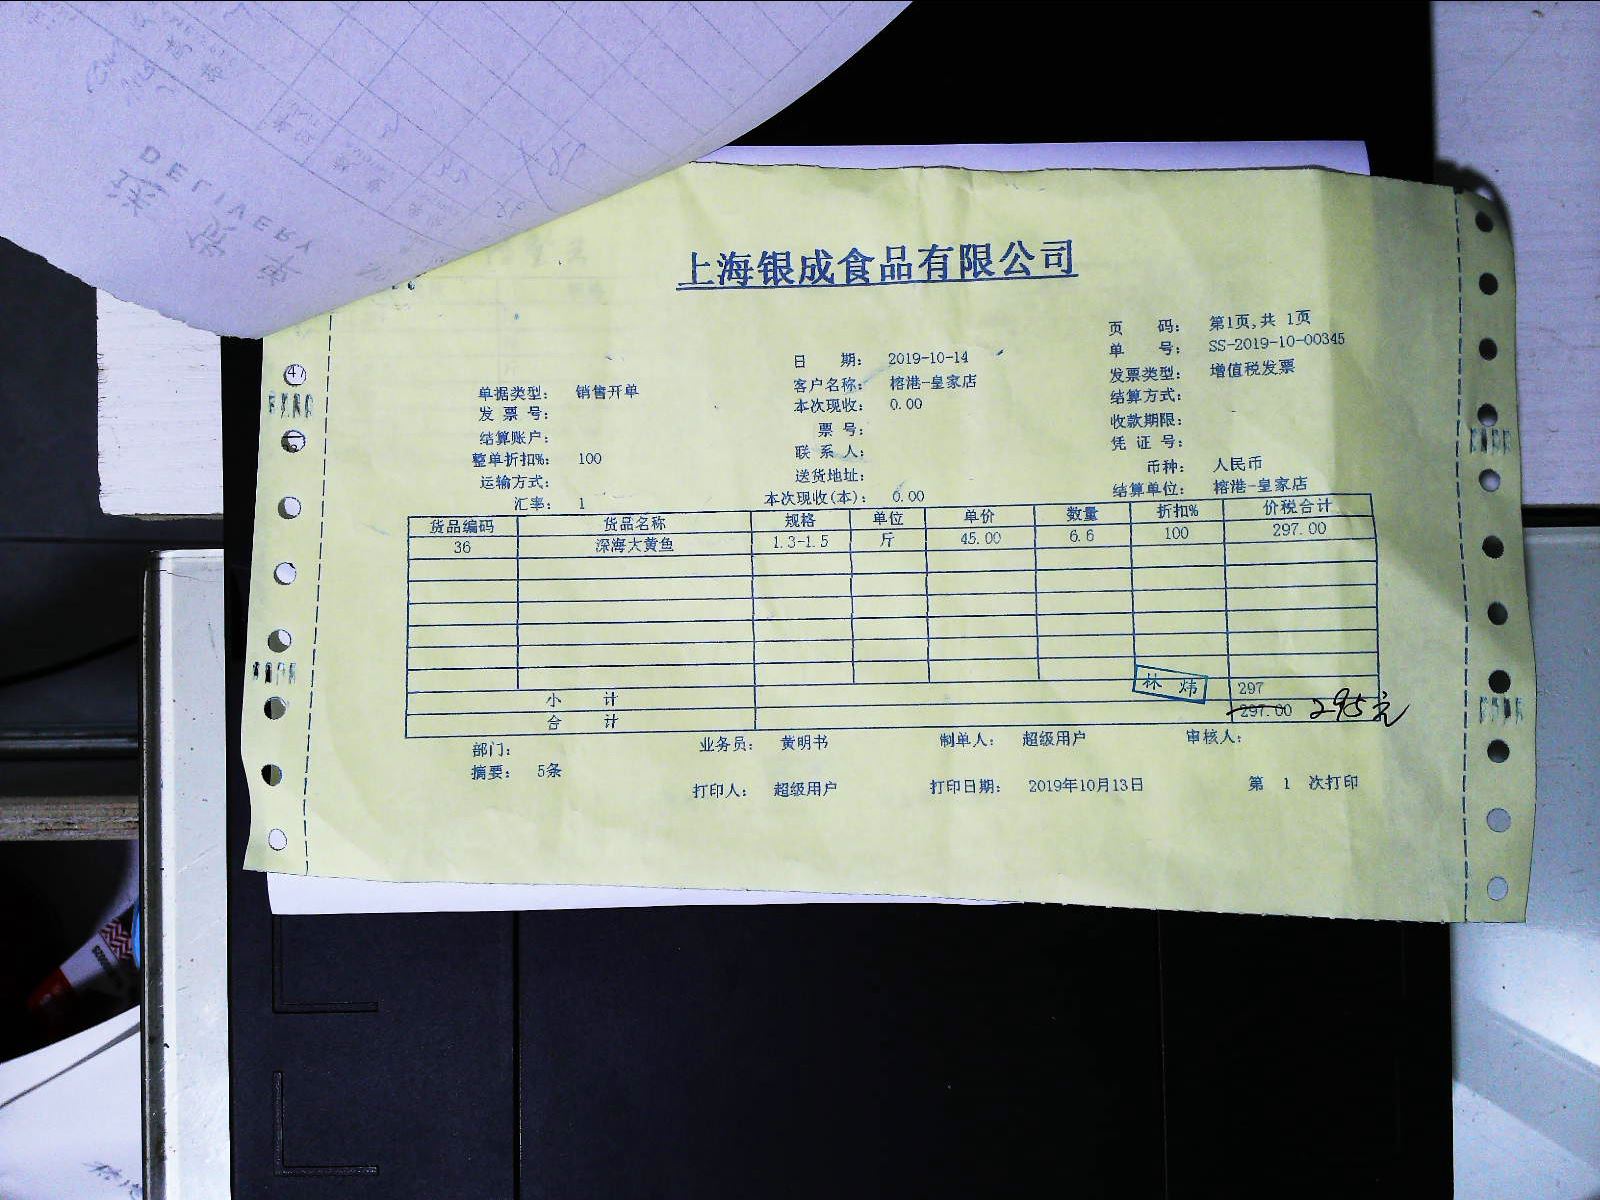 DELIVERY
上海银成食品有限公司
页 码： 第1页,共 1页
日 期： 2019-10-14 单 号： SS-2019-10-00345
单据类型： 销售开单 客户名称： 榕港-皇家店 发票类型： 增值税发票
发 票 号： 本次现收： 0.00 结算方式：
结算账户： 票 号： 收款期限：
整单折扣%： 100 联 系 人： 凭 证 号：
运输方式： 送货地址： 币种： 人民币
汇率： 1 本次现收(本)： 0.00 结算单位： 榕港-皇家店
货品编码 货品名称 规格 单位 单价 数量 折扣% 价税合计
36 深海大黄鱼 1.3-1.5 斤 45.00 6.6 100 297.00
林 炜
小 计 297
合 计 297.00 295元
部门： 业务员： 黄明书 制单人： 超级用户 审核人：
摘要： 5条
打印人： 超级用户 打印日期： 2019年10月13日 第 1 次打印